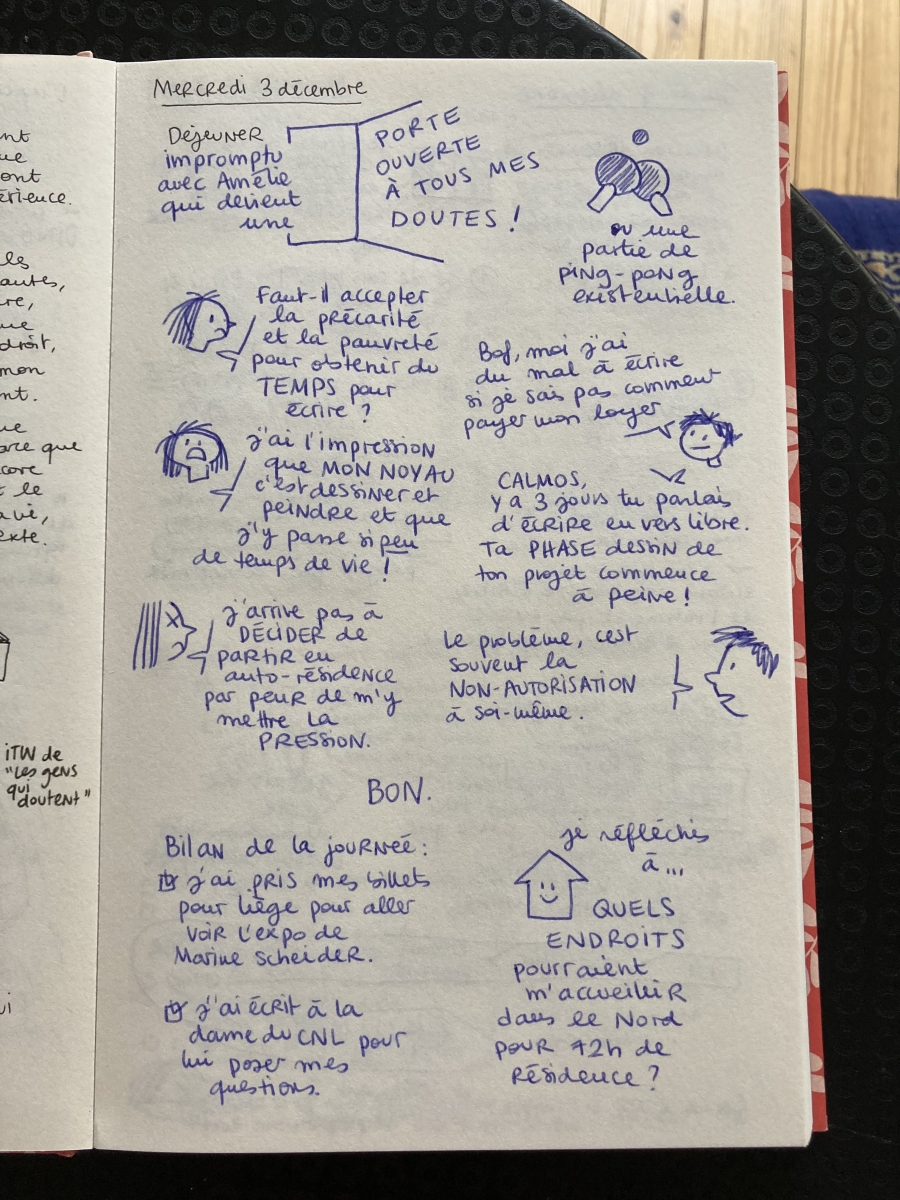 nt
ue
ont
érience.
les
autes,
re,
ue
droit,
mon
nt.
ue
bre que
core
t le
avie,
exte.
iTW de
"Les gens
qui
doutent"
ui
MERCREDI 3 décembre
DéjeuneR
impromptu
avec Amélie
qui devient
une
PORTE
OUVERTE
À TOUS MES
DOUTES !
ou une
partie de
piNg-poNg
existentielle.
Faut-il accepter
la pRécarité
et la pauvreté
pour obtenir du
TEMPS pour
écrire ?
Bof, moi j'ai
du mal à écrire
si je sais pas comment
payer mon loyer
j'ai l'impression
que MON NOYAU
c'est dessiner et
peindre et que
j'y passe si peu
de temps de vie !
CALMOS,
y a 3 jours tu parlais
d'écrire en vers libre.
Ta PHASE dessin de
ton projet commence
à peine !
j'arrive pas à
DÉCIDER de
paRtiR en
auto-résidence
par peur de m'y
mettre la
PRESSION.
Le problème, c'est
souvent la
NON-AUTORISATION
à soi-même.
BON.
Bilan de la jouRnée :
j'ai pRis mes billets
pour Liège pour aller
voiR l'expo de
Marine ScheideR.
j'ai écrit à la
dame du CNL pour
lui poser mes
questions.
je réfléchis
à...
QUELS
ENDROITS
pourraient
m'accueilliR
dans le Nord
pour 72h de
Résidence ?